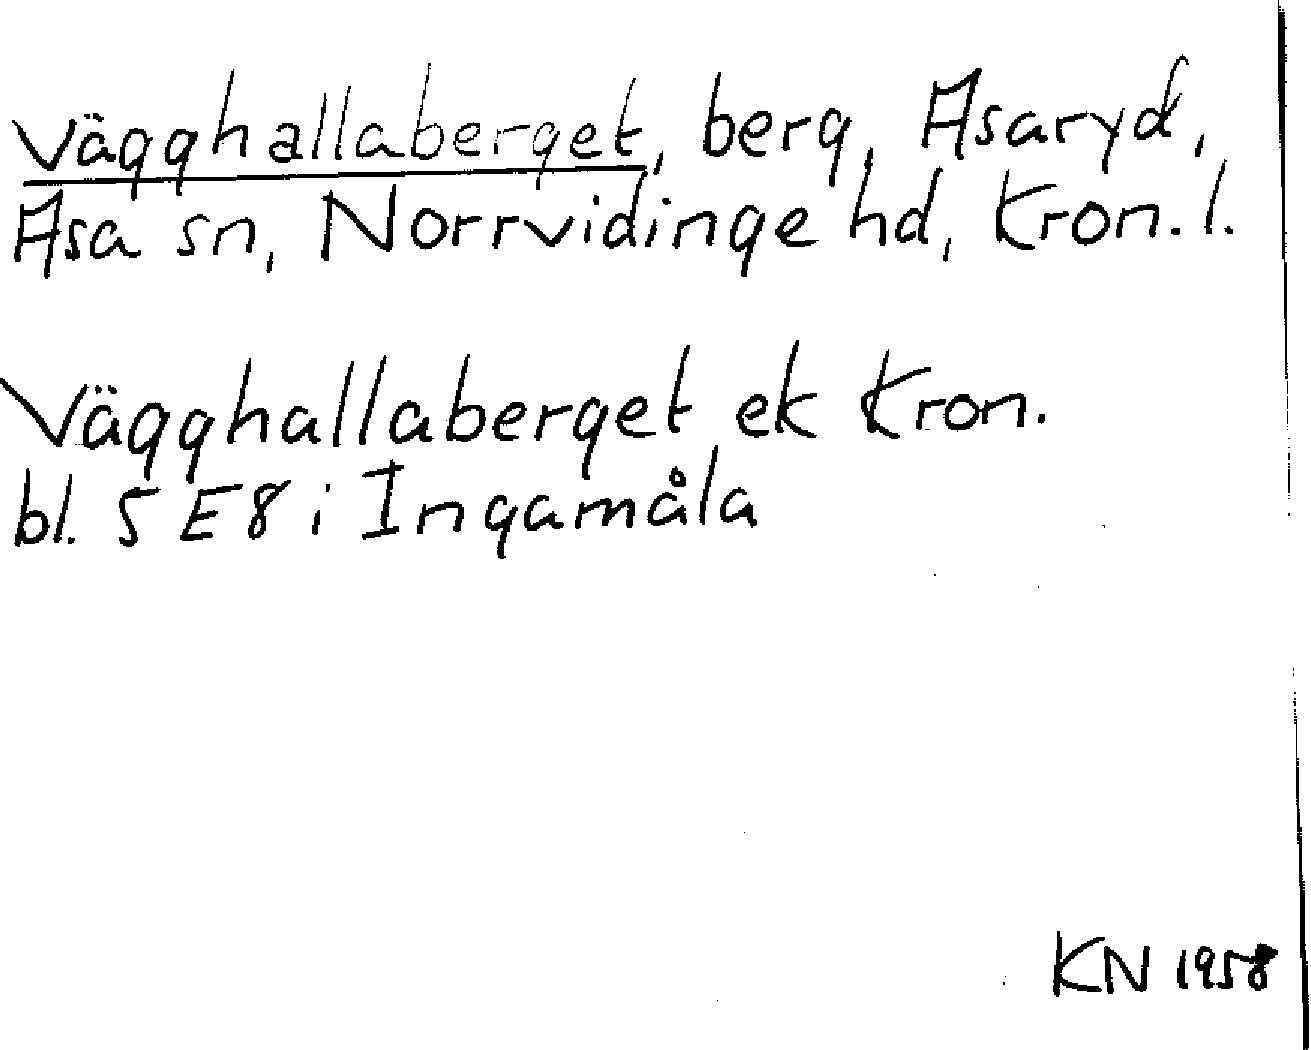 Vägghallaberget, berg, Asaryd,
Asa sn, Norrvidinge hd, Kron. l.
Vägghallaberget ek Kron.
bl. 5 E8 i Ingamåla
KN 1958